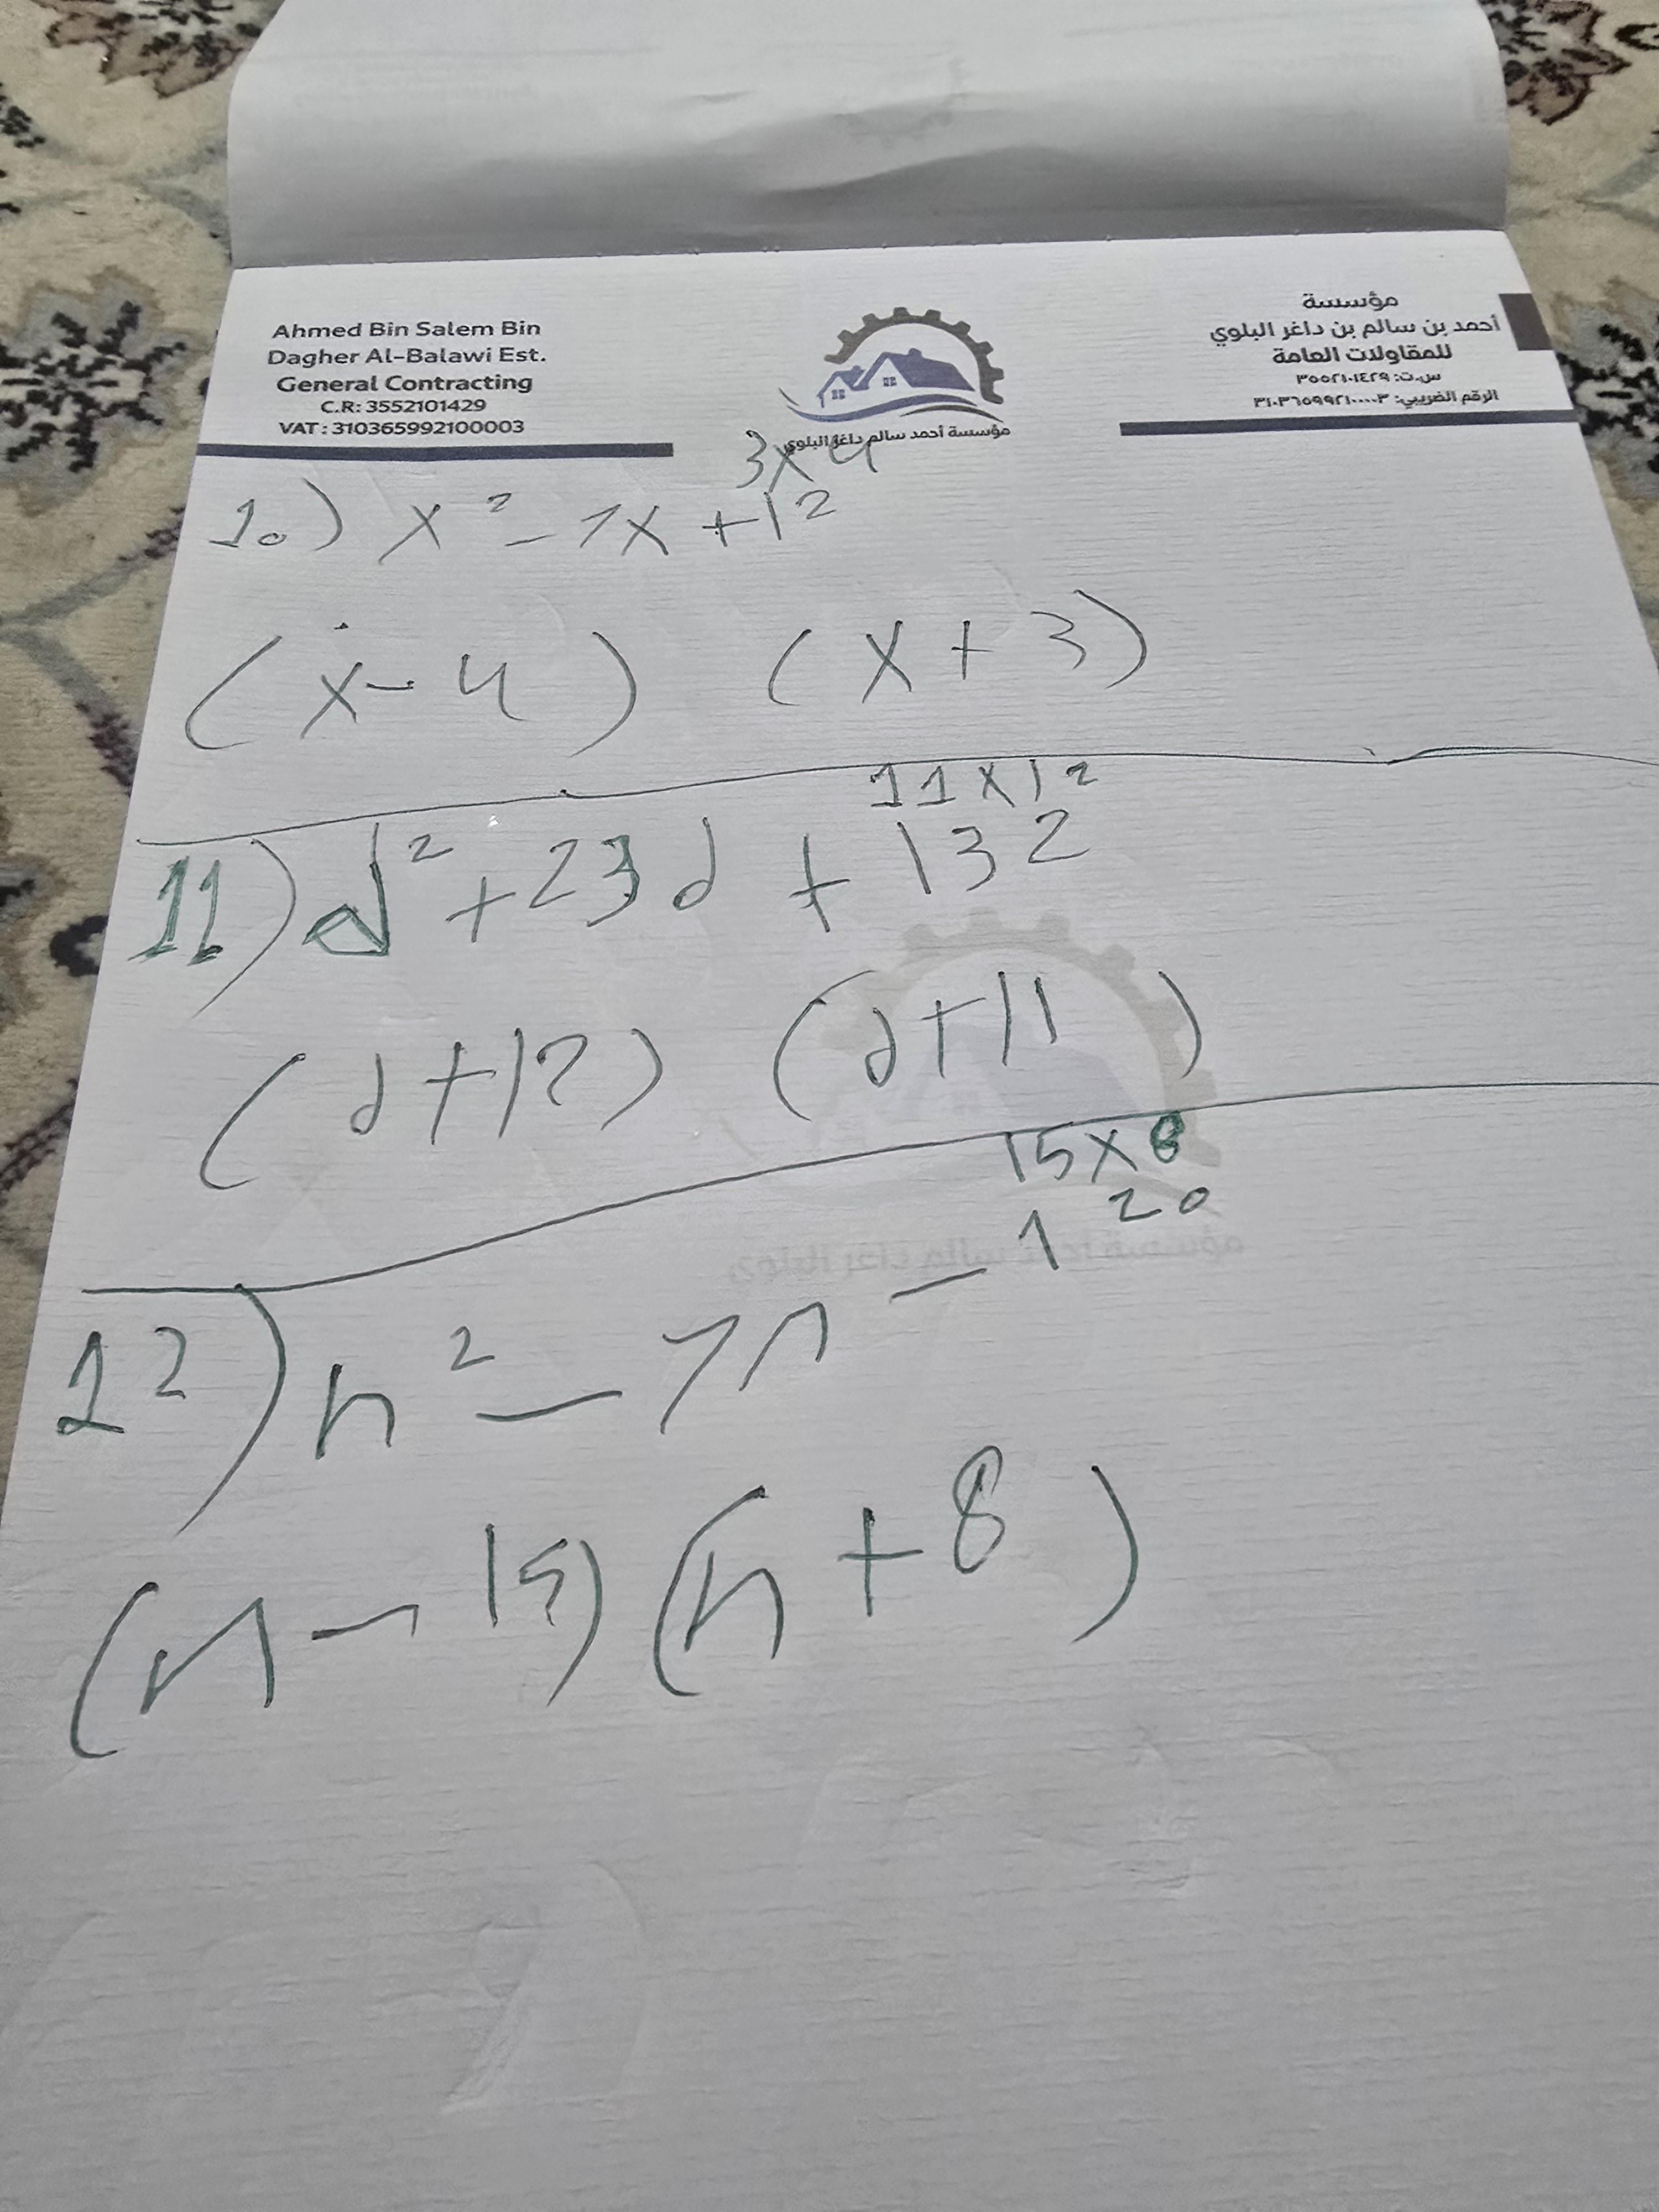 Ahmed Bin Salem Bin
Dagher Al-Balawi Est.
General Contracting
C.R: 3552101429
VAT : 310365992100003
مؤسسة أحمد سالم داغر البلوي
مؤسسة
أحمد بن سالم بن داغر البلوي
للمقاولات العامة
س.ت: ٣٥٥٢١٠١٤٢٩
الرقم الضريبي: ٣١٠٣٦٥٩٩٢١٠٠٠٠٣
3x4
10) x² - 7x + 12
(x - 4) (x + 3)
11 x 12
11) d² + 23d + 132
(d + 12) (d + 11)
15 x 8
12) n² - 7n - 120
(n - 15) (n + 8)